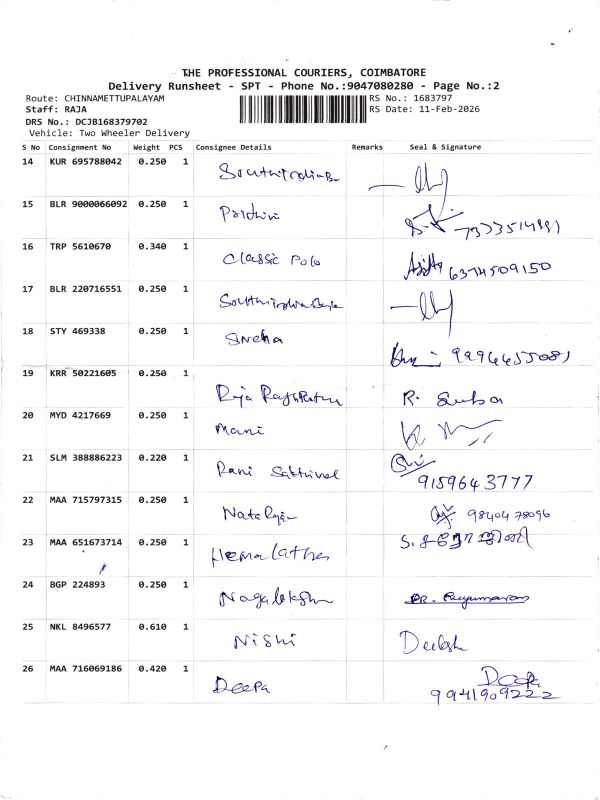 THE PROFESSIONAL COURIERS, COIMBATORE
Delivery Runsheet - SPT - Phone No.:9047080280 - Page No.:2
Route: CHINNAMETTUPALAYAM
RS No.: 1683797
Staff: RAJA
RS Date: 11-Feb-2026
DRS No.: DCJB168379702
Vehicle: Two Wheeler Delivery
S No Consignment No Weight PCS Consignee Details Remarks Seal & Signature
14 KUR 695788042 0.250 1
15 BLR 9000066092 0.250 1
16 TRP 5610670 0.340 1 Classic Polo 6374509150
17 BLR 220716551 0.250 1
18 STY 469338 0.250 1 Sneha
19 KRR 50221605 0.250 1 Raja R.
20 MYD 4217669 0.250 1 Mani
21 SLM 388886223 0.220 1 Rani 9159643777
22 MAA 715797315 0.250 1 Natarajan 9840478096
23 MAA 651673714 0.250 1 Hemalatha
24 BGP 224893 0.250 1
25 NKL 8496577 0.610 1 Nishi
26 MAA 716069186 0.420 1 Deepa Deepa
9941909222